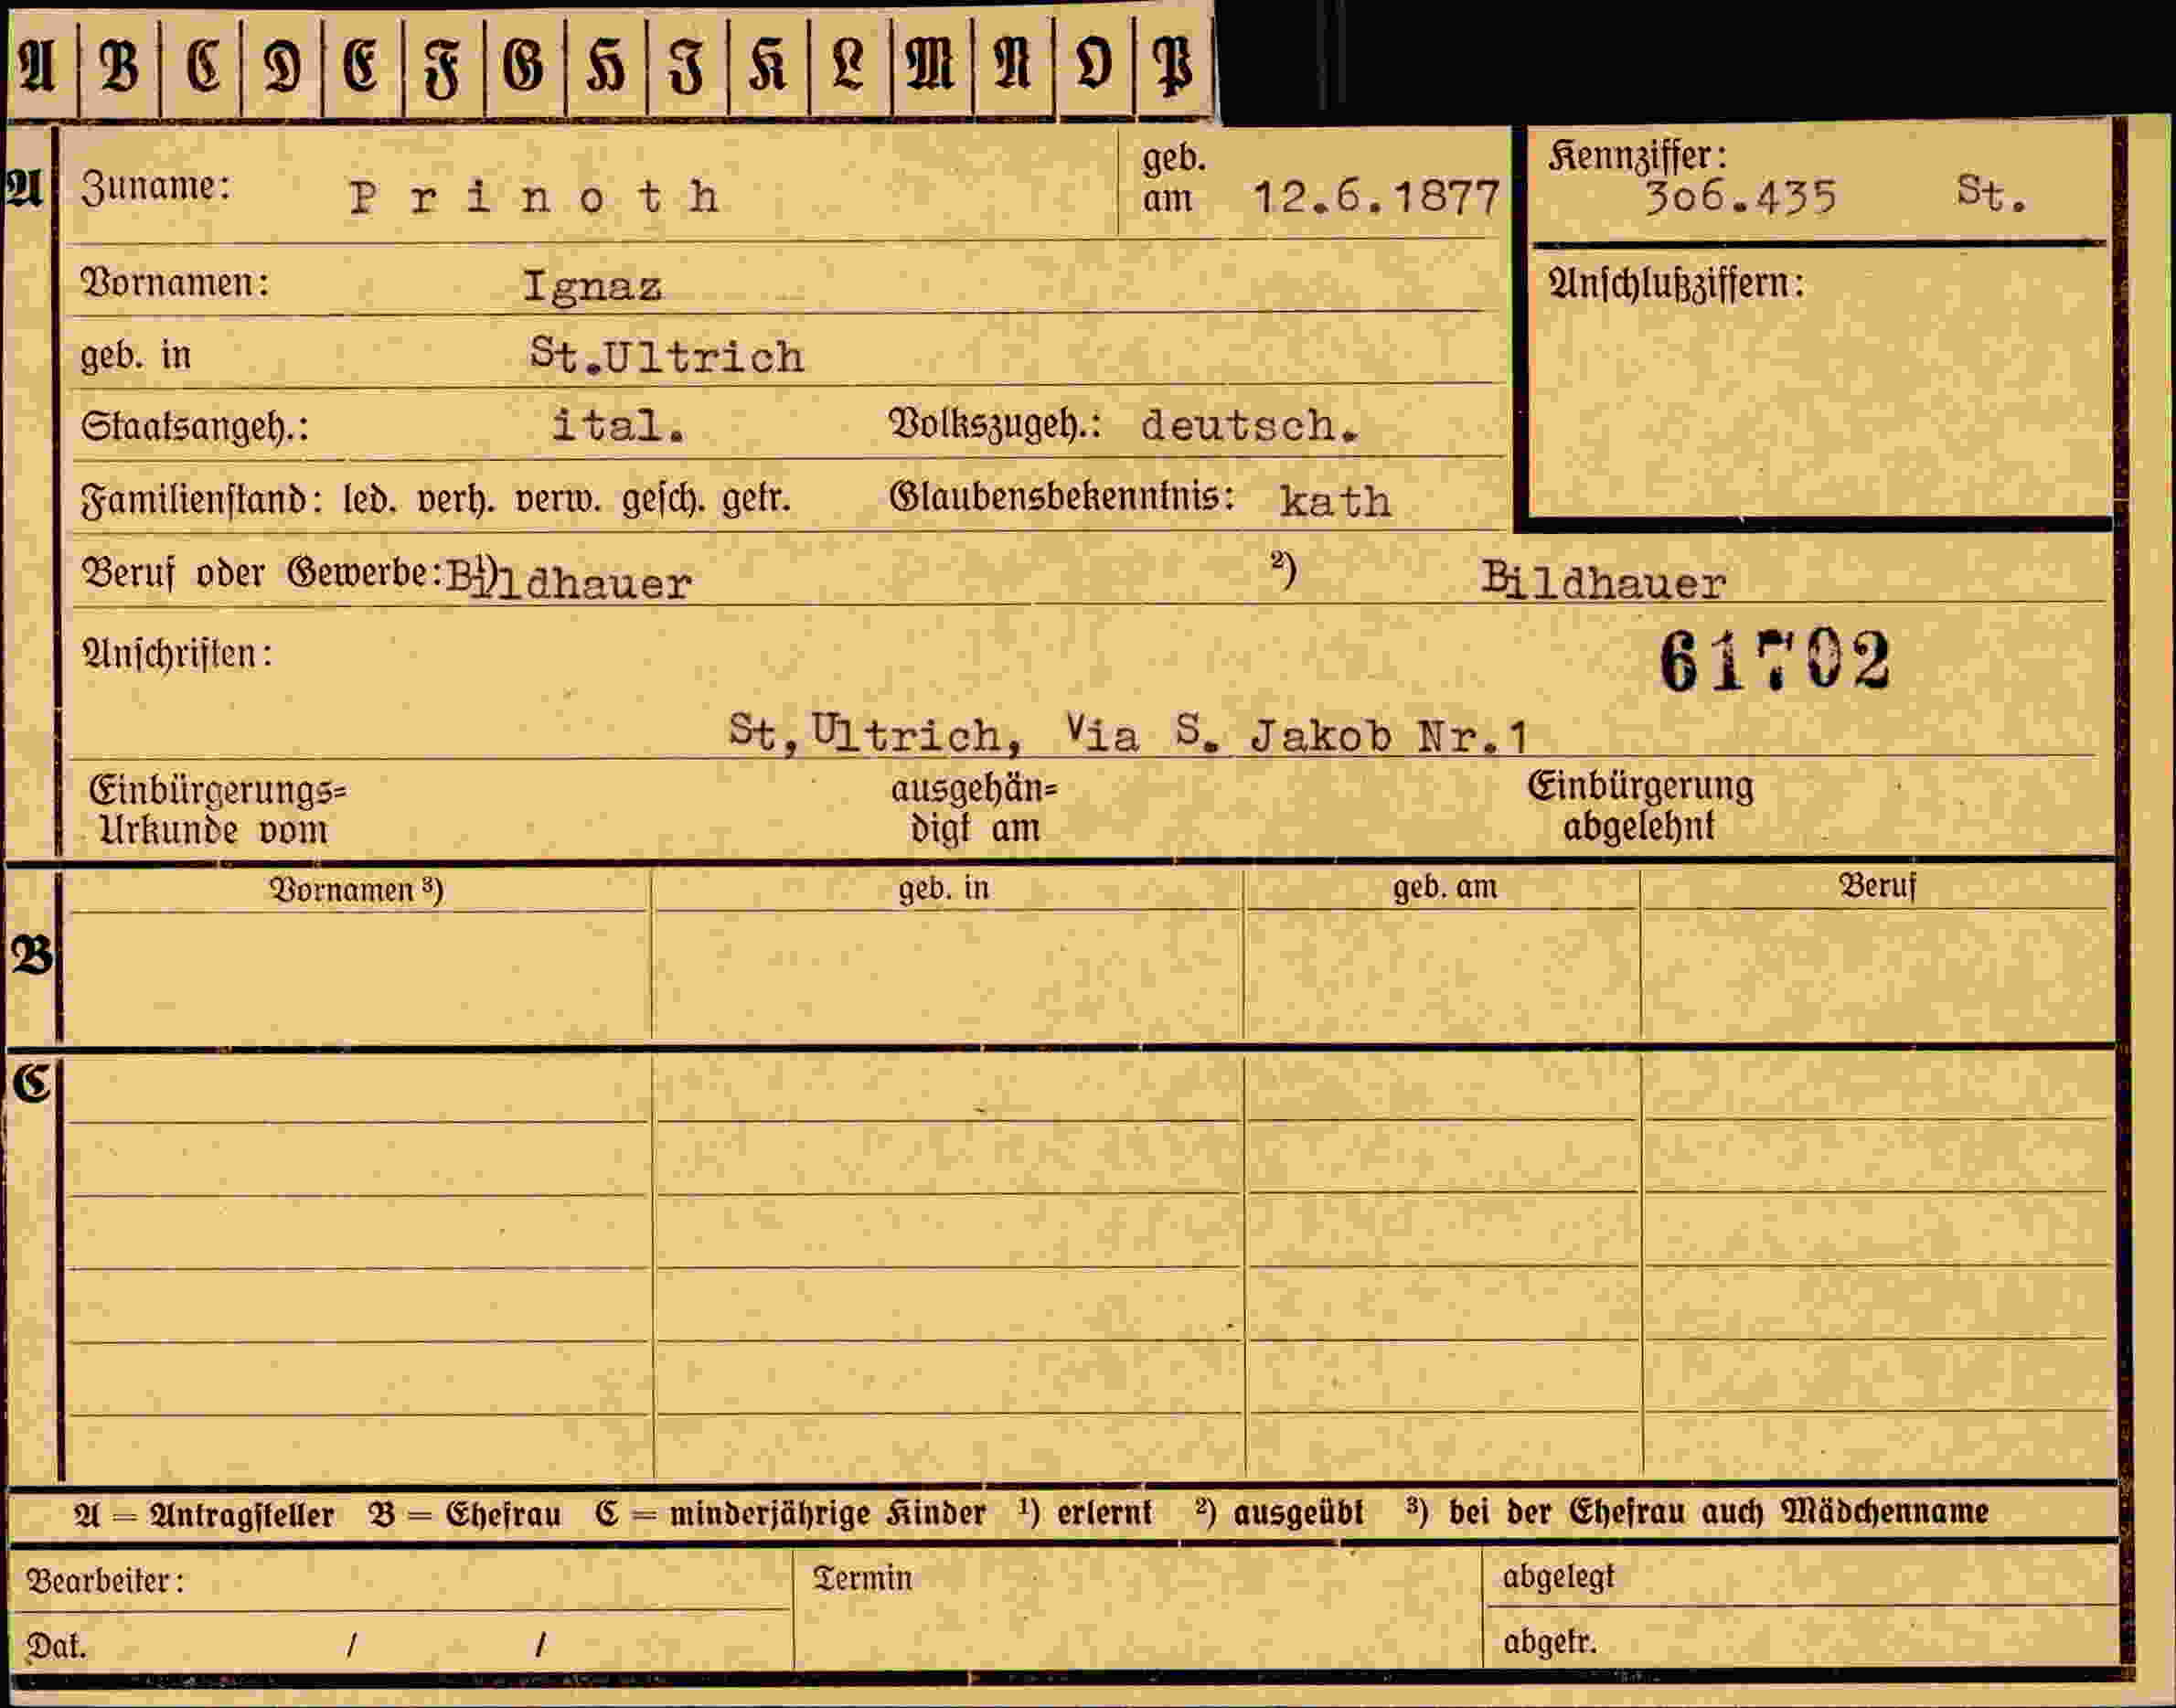 A B C D E F G H I K L M N O P
A Zuname: Prinoth geb. am 12.6.1877 Kennziffer: 306.435 St.
Vornamen: Ignaz Anschlußziffern:
geb. in St.Ultrich
Staatsangeh.: ital. Volkszugeh.: deutsch.
Familienstand: led. verh. verw. gesch. getr. Glaubensbekenntnis: kath
Beruf oder Gewerbe: 1) Bildhauer 2) Bildhauer
Anschriften: 61702
St,Ultrich, Via S. Jakob Nr.1
Einbürgerungs= ausgehän= Einbürgerung
Urkunde vom digt am abgelehnt
Vornamen 3) geb. in geb. am Beruf
B
C
A = Antragsteller B = Ehefrau C = minderjährige Kinder 1) erlernt 2) ausgeübt 3) bei der Ehefrau auch Mädchenname
Bearbeiter: Termin abgelegt
Dat. / / abgetr.